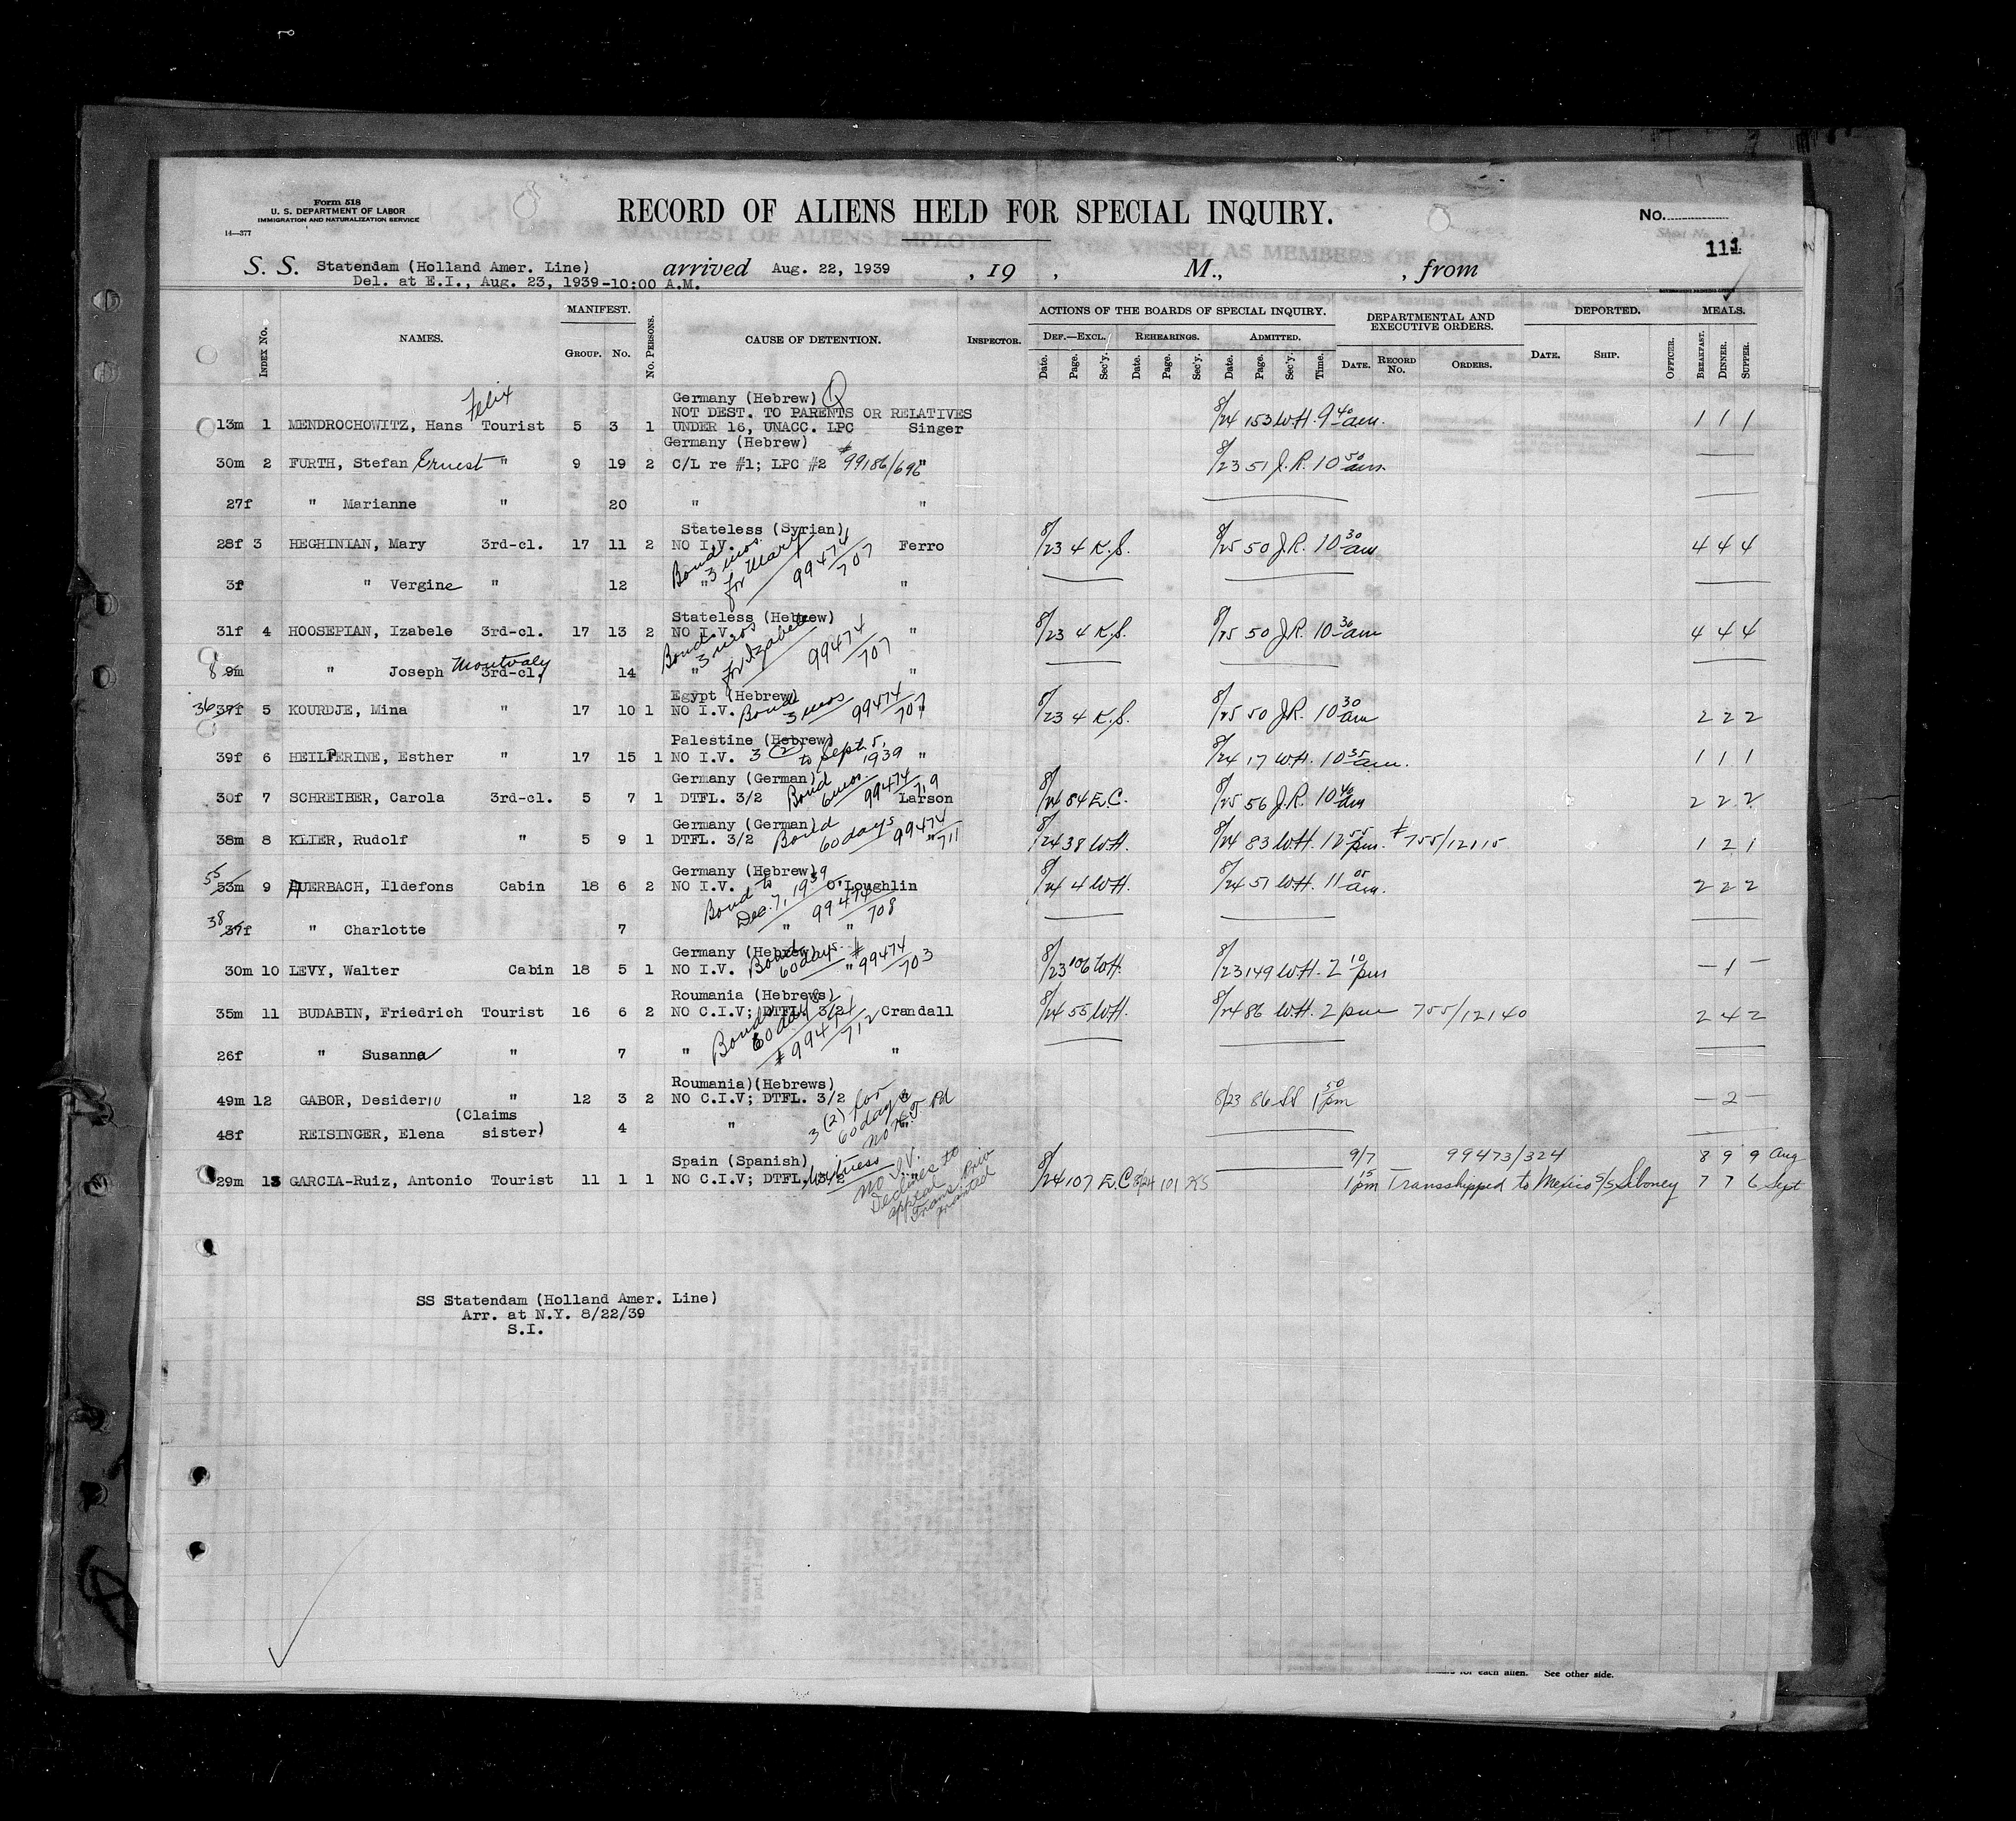 Form 518
U. S. DEPARTMENT OF LABOR
IMMIGRATION AND NATURALIZATION SERVICE
14—377
RECORD OF ALIENS HELD FOR SPECIAL INQUIRY.
No.
111
S. S. Statendam (Holland Amer. Line) arrived Aug. 22, 1939 , 19 , M., , from
Del. at E.I., Aug. 23, 1939-10:00 A.M.
Index No. NAMES. MANIFEST. Group. No. No. Persons. CAUSE OF DETENTION. Inspector. ACTIONS OF THE BOARDS OF SPECIAL INQUIRY. Def.—Excl. Date. Page. Sec'y. Rehearings. Date. Page. Sec'y. Admitted. Date. Page. Sec'y. Time. DEPARTMENTAL AND EXECUTIVE ORDERS. Date. Record No. Orders. DEPORTED. Date. Ship. Officer. MEALS. Breakfast. Dinner. Supper.
Felix Germany (Hebrew)
NOT DEST. TO PARENTS OR RELATIVES
13m 1 MENDROCHOWITZ, Hans Tourist 5 3 1 UNDER 16, UNACC. LPC Singer 8/24 153 W.H. 9 40 am. 1 1 1
Germany (Hebrew)
30m 2 FURTH, Stefan Ernest " 9 19 2 C/L re #1; LPC #2 #99186/696 " 8/23 51 J.R. 10 50 am.
27f " Marianne " 20 " "
Stateless (Syrian)
28f 3 HEGHINIAN, Mary 3rd-cl. 17 11 2 NO I.V. Bond 3 mos. for Mary 99474/707 Ferro 8/23 4 K.S. 8/25 50 J.R. 10 30 am 4 4 4
3f " Vergine " 12 " "
Stateless (Hebrew)
31f 4 HOOSEPIAN, Izabele 3rd-cl. 17 13 2 NO I.V. Bond 3 mos for Izabele 99474/707 " 8/23 4 K.S. 8/25 50 J.R. 10 30 am 4 4 4
8 9m " Joseph Montvaly 3rd-cl. 14 " "
Egypt (Hebrew)
36 37f 5 KOURDJE, Mina " 17 10 1 NO I.V. Bond 3 mos 99474/707 " 8/23 4 K.S. 8/25 50 J.R. 10 30 am 2 2 2
Palestine (Hebrew)
39f 6 HEILPERINE, Esther " 17 15 1 NO I.V. 3 (2) to Sept. 5, 1939 " 8/24 17 W.H. 10 35 am. 1 1 1
Germany (German)
30f 7 SCHREIBER, Carola 3rd-cl. 5 7 1 DTFL. 3/2 Bond 6 mos 99474/719 Larson 8/24 84 E.C. 8/25 56 J.R. 10 40 am 2 2 2
Germany (German)
38m 8 KLIER, Rudolf " 5 9 1 DTFL. 3/2 Bond 60 days 99474/711 " 8/24 38 W.H. 8/24 83 W.H. 12 55 pm. # 755/12115 1 2 1
Germany (Hebrew)
55 53m 9 AUERBACH, Ildefons Cabin 18 6 2 NO I.V. Bond to Dec. 7, 1939 99474/708 O'Loughlin 8/24 4 W.H. 8/24 51 W.H. 11 05 am. 2 2 2
38 37f " Charlotte 7 " "
Germany (Hebrew)
30m 10 LEVY, Walter Cabin 18 5 1 NO I.V. Bond 60 days. # 99474/703 " 8/23 106 W.H. 8/23 149 W.H. 2 10 pm — 1 —
Roumania (Hebrews)
35m 11 BUDABIN, Friedrich Tourist 16 6 2 NO C.I.V; DTFL. 3/2 Bonds 60 days # 99474/712 Crandall 8/24 55 W.H. 8/24 86 W.H. 2 pm 755/12140 2 4 2
26f " Susanna " 7 " "
Roumania)(Hebrews)
49m 12 GABOR, Desideriu " 12 3 2 NO C.I.V; DTFL. 3/2 3 (2) for 60 days 8/23 86 SS 1 50 pm — 2 —
(Claims
48f REISINGER, Elena sister) 4 "
Spain (Spanish) 9/7 99473/324 8 9 9 Aug
29m 13 GARCIA-Ruiz, Antonio Tourist 11 1 1 NO C.I.V; DTFL. 3/2 Witness no I.V. Declines to appeal Trans. Priv granted 8/24 107 E.C. 8/24 101 KS 1 15 pm Transshipped to Mexico S/S Siboney 7 7 6 Sept
SS Statendam (Holland Amer. Line)
Arr. at N.Y. 8/22/39
S.I.
for each alien. See other side.